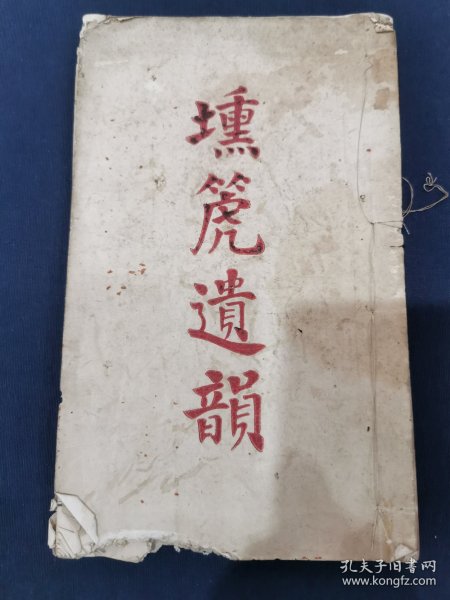 壎篪遺韻
孔夫子旧书网
www.kongfz.com